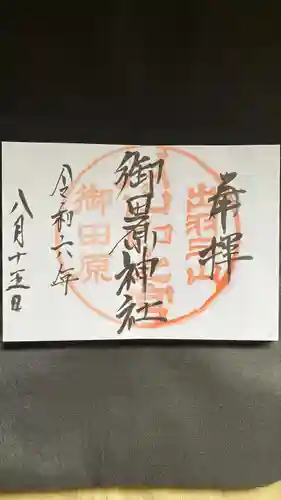 奉拝
出羽三山
御田原神社
御田原
令和六年
八月十五日